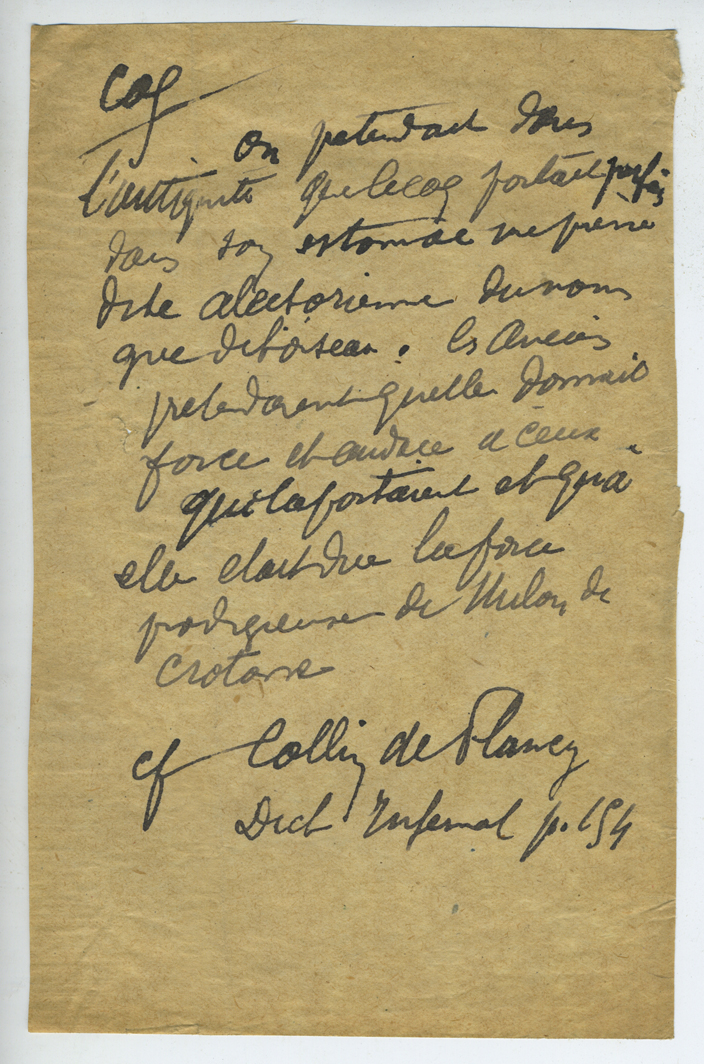 coq
on pretendait dans
l'antiquité que le coq portait parfois
dans son estomac une pierre
dite alectorienne du nom
que dit l'oiseau. les Anciens
pretendaient quelle donnait
force et audace a ceux
qui la portaient et qu'a
elle etait due la force
prodigieuse de Milon de
Crotone
cf Collin de Plancy
Dict Infernal p. 154